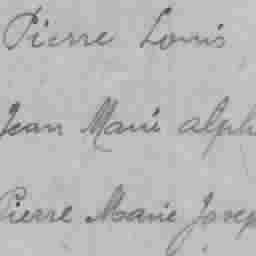 Pierre Louis
Jean Marie alph
Pierre Marie Josep